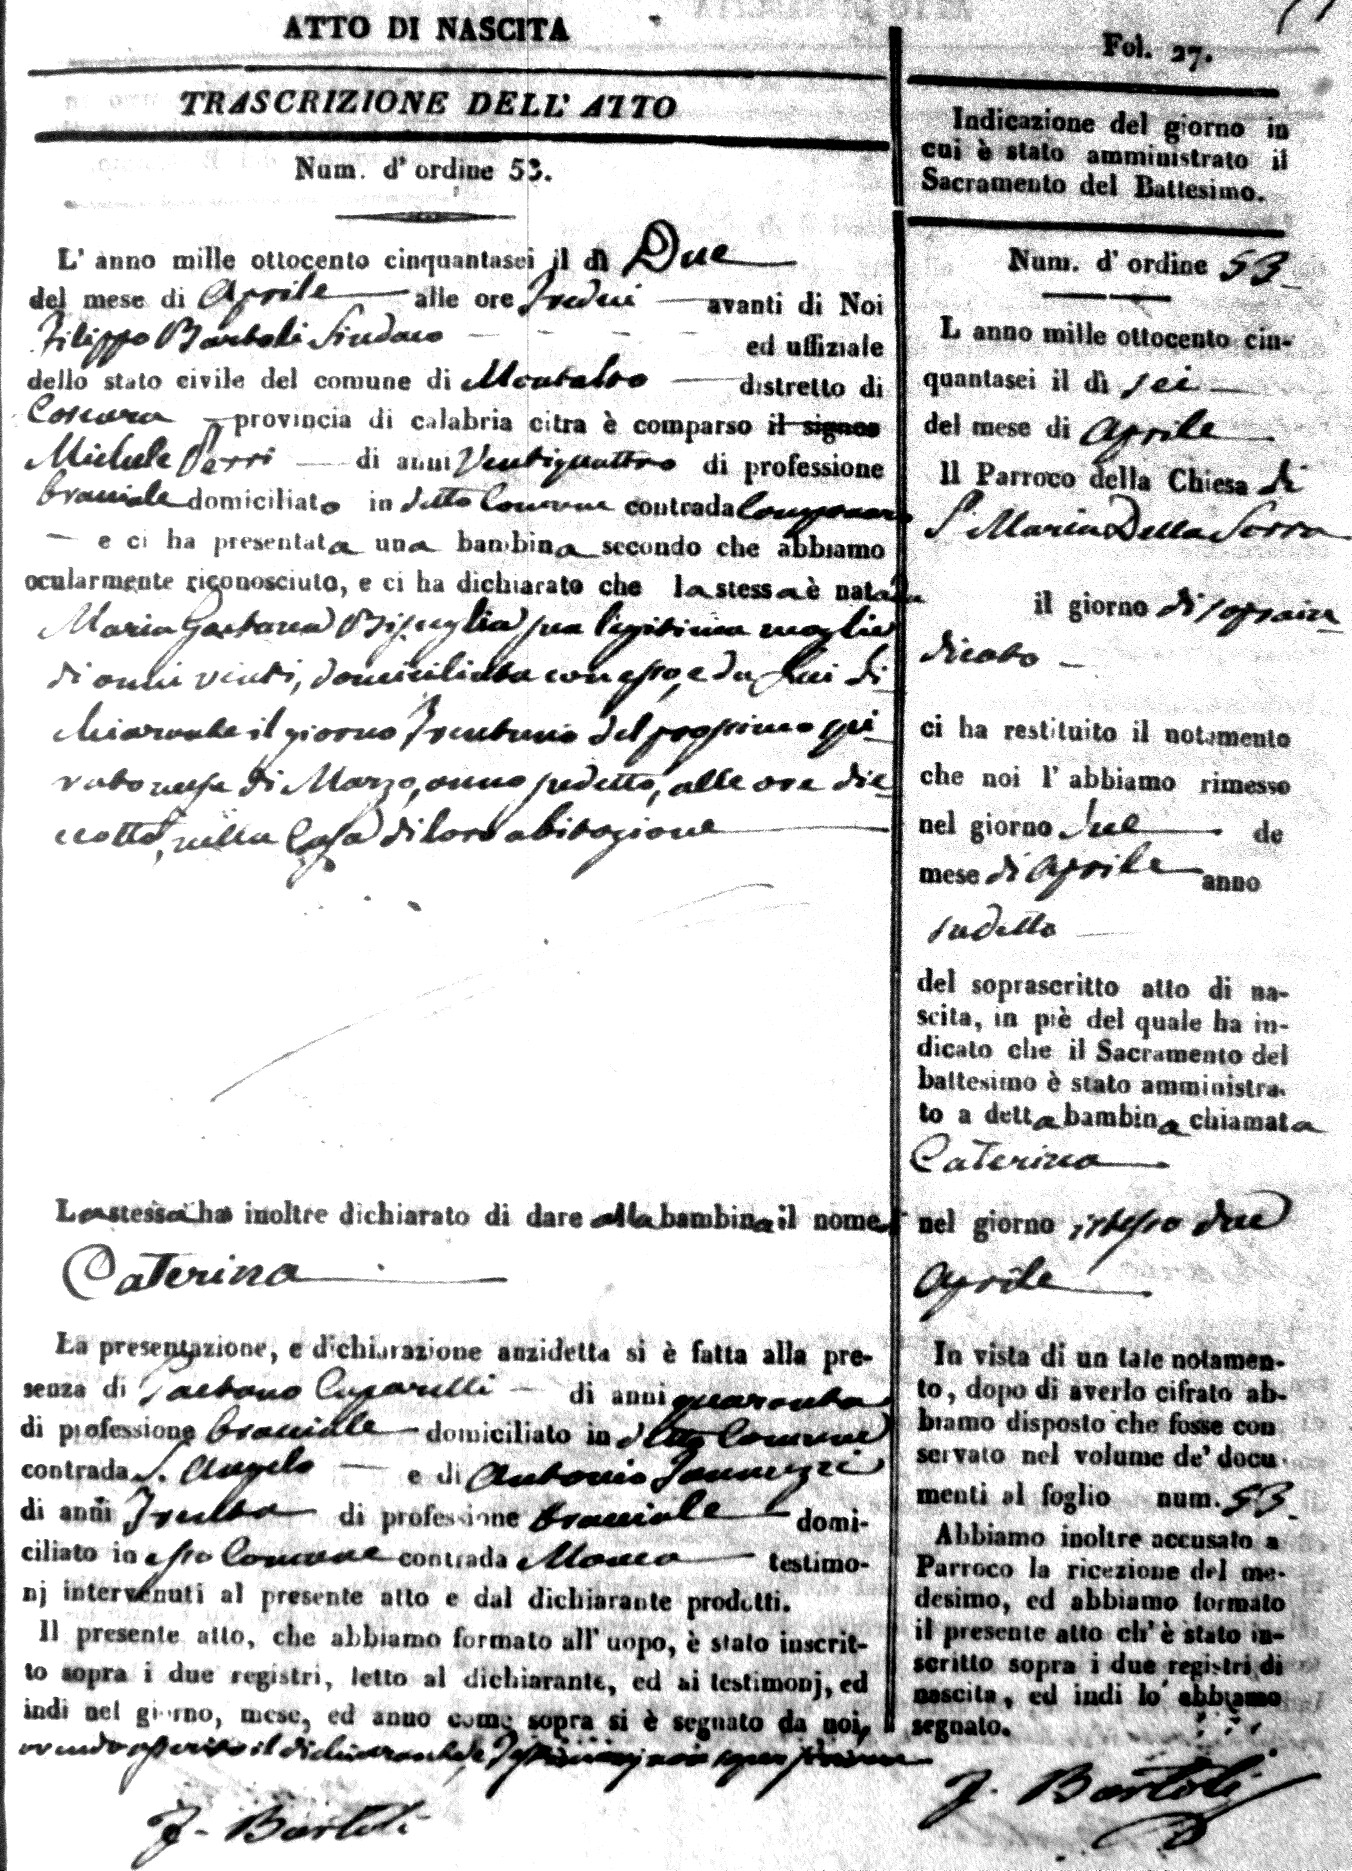 ATTO DI NASCITA
TRASCRIZIONE DELL' ATTO
Num. d' ordine 53.
L' anno mille ottocento cinquantasei il dì Due
del mese di Aprile alle ore Tredici avanti di Noi
Filippo Bartoli Sindaco
ed uffiziale
dello stato civile del comune di Montalto distretto di
Cosenza provincia di calabria citra è comparso il signor
Michele Perri di anni Ventiquattro di professione
bracciale domiciliato in detto Comune contrada
e ci ha presentata una bambina secondo che abbiamo
ocularmente riconosciuto, e ci ha dichiarato che la stessa è nata da
Maria Gaetana Bisciglia sua legittima moglie
di anni venti, domiciliata con esso, e da Lui di-
chiarante il giorno Trentuno del prossimo spi-
rato mese di Marzo, anno sudetto, alle ore die-
ciotto, nella Casa di loro abitazione
La stessa ha inoltre dichiarato di dare alla bambina il nome di
Caterina
La presentazione, e dichiarazione anzidetta si è fatta alla pre-
senza di Gaetano Caparelli di anni quaranta
di professione bracciale domiciliato in detto Comune
contrada S. Angelo e di Antonio Iannuzzi
di anni Trenta di professione bracciale domi-
ciliato in esso Comune contrada testimo-
nj intervenuti al presente atto e dal dichiarante prodotti.
Il presente atto, che abbiamo formato all' uopo, è stato inscrit-
to sopra i due registri, letto al dichiarante, ed ai testimonj, ed
indi nel giorno, mese, ed anno come sopra si è segnato da noi,
avendo asserito il dichiarante, e Testimonj non saper firmare
F. Bartoli
Fol. 27.
Indicazione del giorno in
cui è stato amministrato il
Sacramento del Battesimo.
Num. d' ordine 53
L anno mille ottocento cin-
quantasei il dì sei
del mese di Aprile
Il Parroco della Chiesa di
S. Maria Della Serra
il giorno di sopra in-
dicato
ci ha restituito il notamento
che noi l' abbiamo rimesso
nel giorno due de
mese di Aprile anno
sudetto
del soprascritto atto di na-
scita, in piè del quale ha in-
dicato che il Sacramento del
battesimo è stato amministra-
to a detta bambina chiamata
Caterina
nel giorno istesso due
Aprile
In vista di un tale notamen-
to, dopo di averlo cifrato ab-
biamo disposto che fosse con
servato nel volume de' docu-
menti al foglio num. 53
Abbiamo inoltre accusato a
Parroco la ricezione del me-
desimo, ed abbiamo formato
il presente atto ch' è stato in-
scritto sopra i due registri di
nascita, ed indi lo abbiamo
segnato.
F. Bartoli